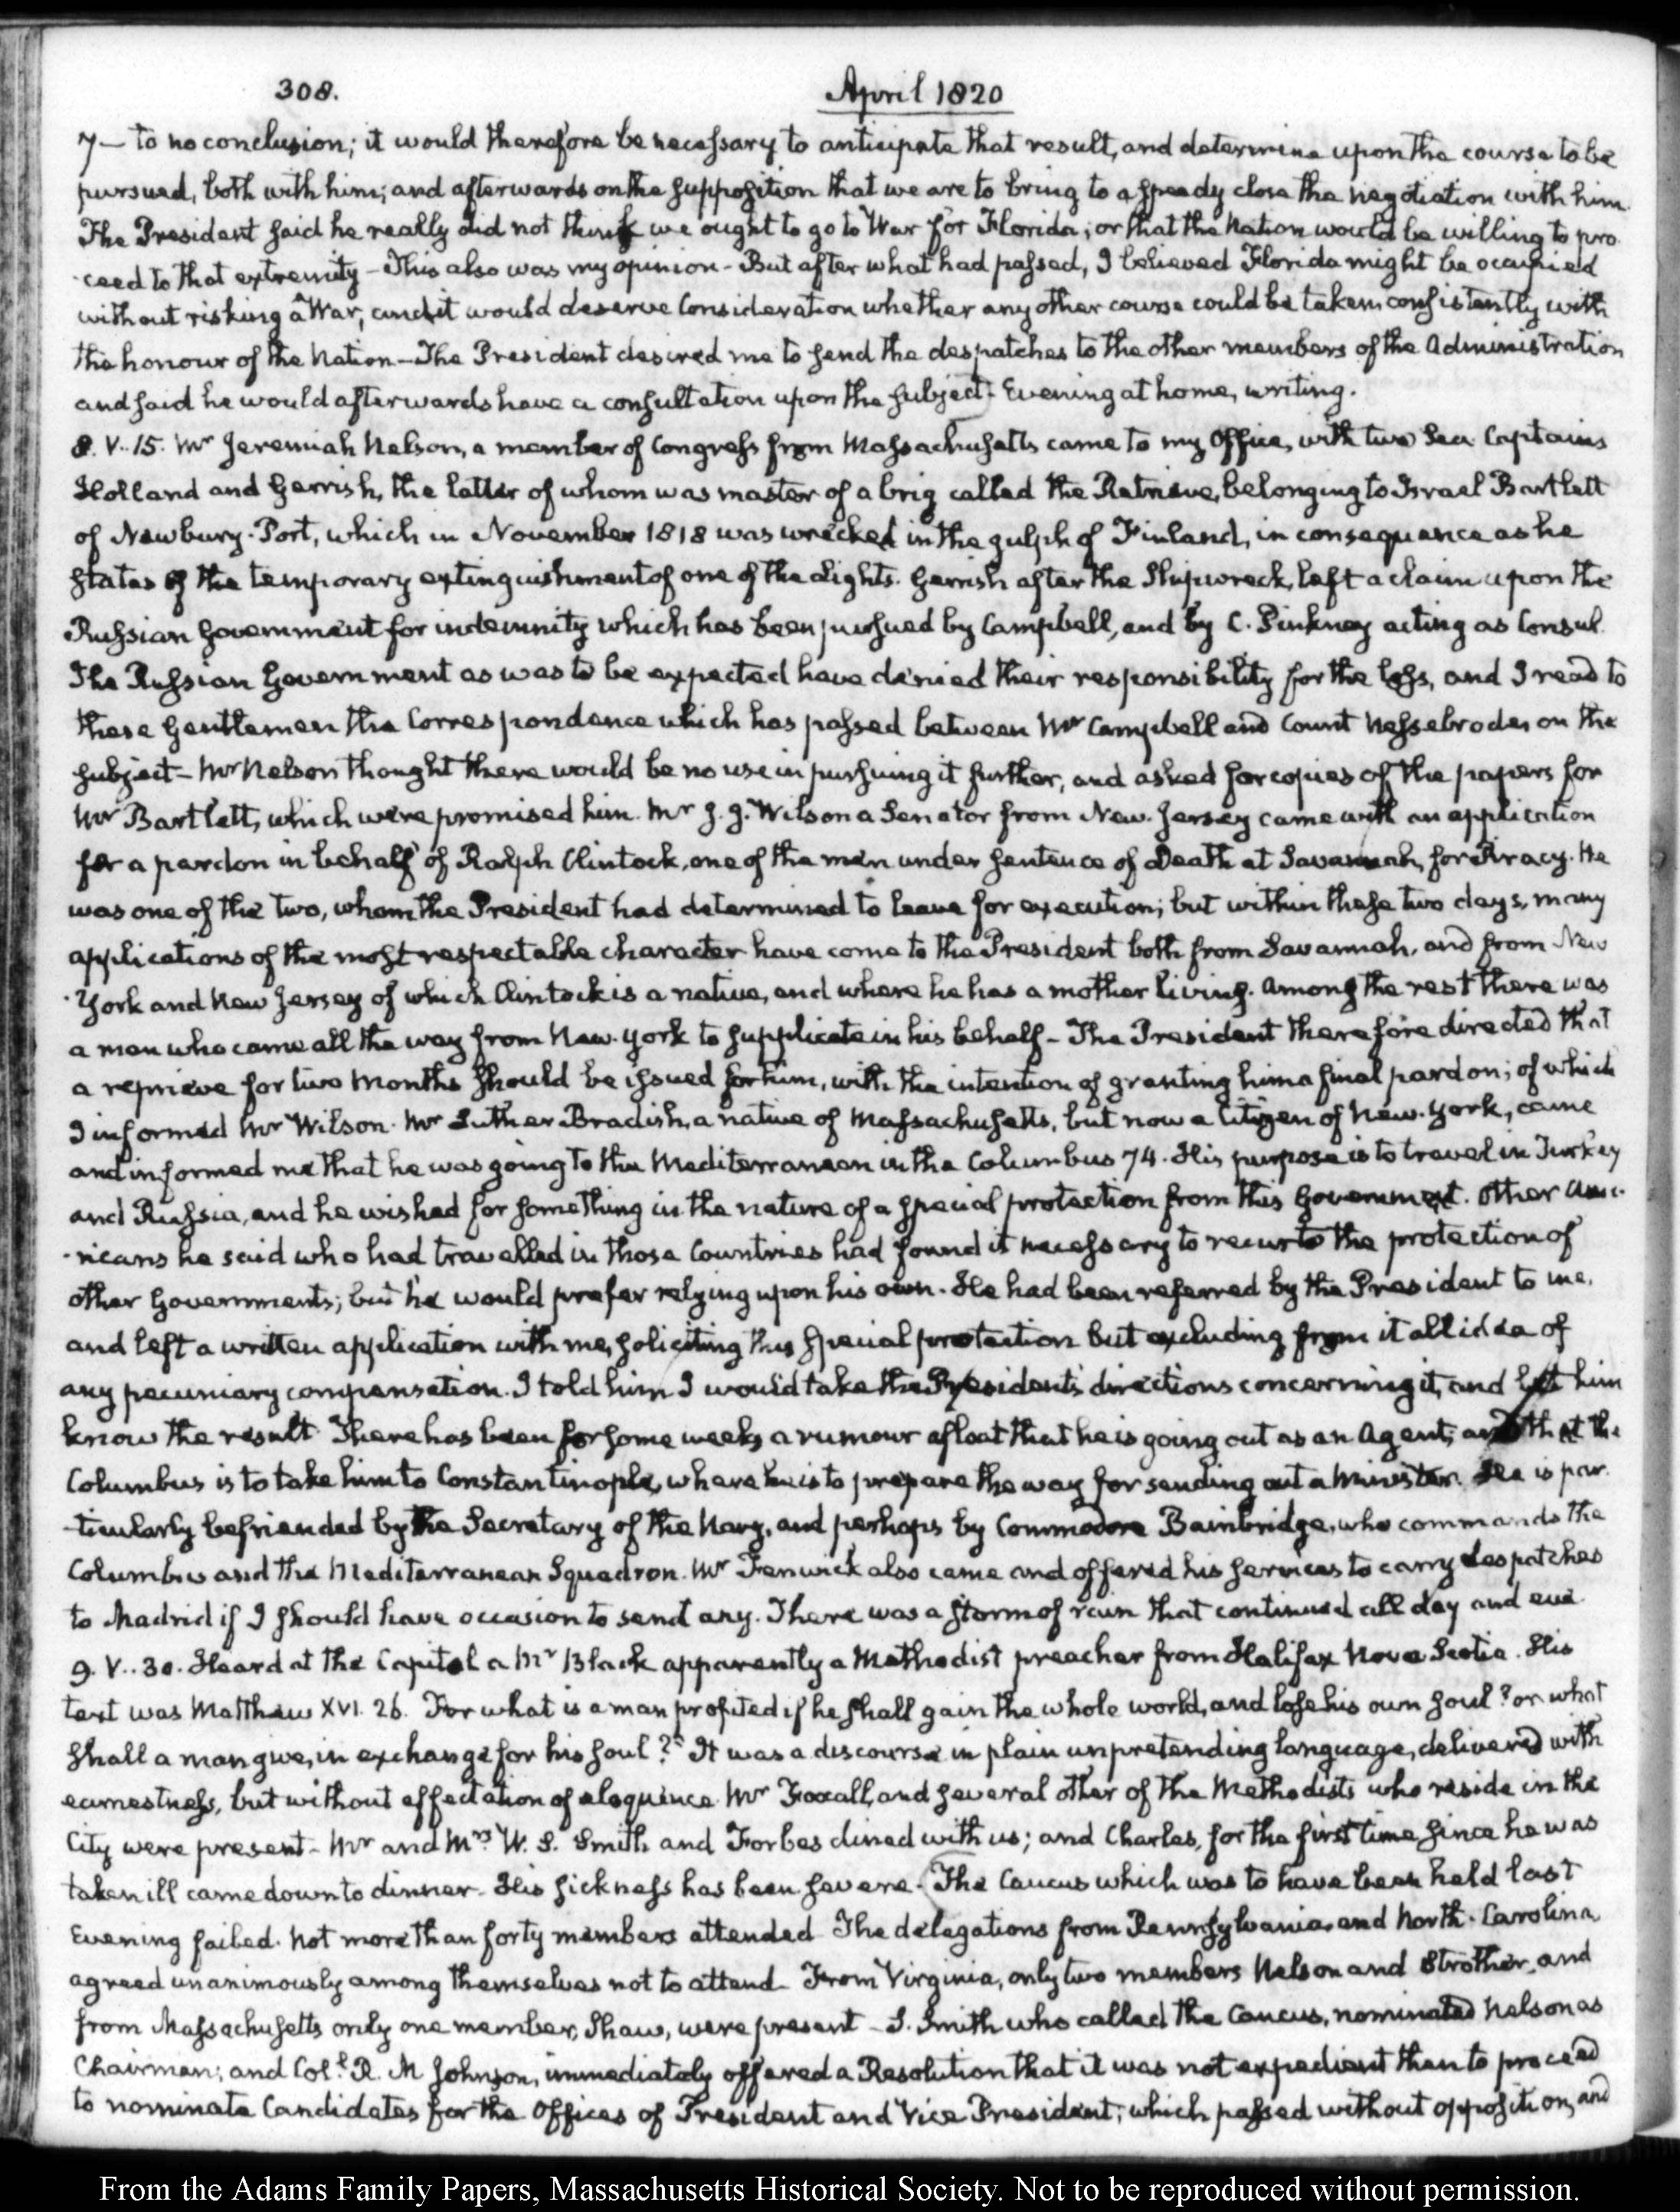 308. April 1820
7— to no conclusion; it would therefore be necessary to anticipate that result, and determine upon the course to be
pursued, both with him; and afterwards on the supposition that we are to bring to a speedy close the negotiation with him.
The President said he really did not think we ought to go to War for Florida; or that the Nation would be willing to pro-
-ceed to that extremity – This also was my opinion – But after what had passed, I believed Florida might be occupied
without risking a War, and it would deserve Consideration whether any other course could be taken consistently with
the honour of the Nation — The President desired me to send the despatches to the other members of the Administration
and said he would afterwards have a consultation upon the subject. Evening at home, writing.
8. V. 15. Mr Jeremiah Nelson, a member of Congress from Massachusetts came to my Office, with two Sea Captains
Holland and Gerrish, the latter of whom was master of a brig called the Retrieve, belonging to Israel Bartlett
of Newbury-Port, which in November 1818 was wrecked in the gulph of Finland, in consequence as he
states of the temporary extinguishment of one of the Lights. Gerrish after the Shipwreck, left a claim upon the
Russian Government for indemnity which has been pursued by Campbell, and by C. Pinkney acting as Consul.
The Russian Government as was to be expected have denied their responsibility for the loss, and I read to
these Gentlemen the Correspondence which has passed between Mr Campbell and Count Nesselrode, on the
subject – Mr Nelson thought there would be no use in pursuing it further, and asked for copies of the papers for
Mr Bartlett, which were promised him. Mr J. J. Wilson a Senator from New-Jersey came with an application
for a pardon in behalf of Ralph Clintock, one of the men under sentence of Death at Savannah, for Piracy. He
was one of the two, whom the President had determined to leave for execution; but within these two days, many
applications of the most respectable character have come to the President both from Savannah, and from New
-York and New Jersey of which Clintock is a native, and where he has a mother living. Among the rest there was
a man who came all the way from New-York to supplicate in his behalf – The President therefore directed that
a reprieve for two Months should be issued for him, with the intention of granting him a final pardon; of which
I informed Mr Wilson. Mr Luther Bradish, a native of Massachusetts, but now a Citizen of New-York, came
and informed me that he was going to the Mediterranean in the Columbus 74. His purpose is to travel in Turkey
and Russia, and he wished for something in the nature of a special protection from this Government. Other Ame-
-ricans he said who had travelled in those Countries had found it necessary to recur to the protection of
other Governments; but he would prefer relying upon his own. He had been referred by the President to me,
and left a written application with me, soliciting this special protection but excluding from it all idea of
any pecuniary compensation. I told him I would take the President's directions concerning it, and let him
know the result. There has been for some weeks a rumour afloat that he is going out as an Agent, and that the
Columbus is to take him to Constantinople, where he is to prepare the way for sending out a Minister. He is par-
-ticularly befriended by the Secretary of the Navy, and perhaps by Commodore Bainbridge, who commands the
Columbus and the Mediterranean Squadron. Mr Fenwick also came and offered his services to carry despatches
to Madrid if I should have occasion to send any. There was a storm of rain that continued all day and eve.
9. V. 30. Heard at the Capitol a Mr Black apparently a Methodist preacher from Halifax Nova Scotia. His
text was Matthew XVI. 26. For what is a man profited if he shall gain the whole world, and lose his own soul? or what
shall a man give, in exchange for his soul? It was a discourse in plain unpretending language, delivered with
earnestness, but without affectation of eloquence. Mr Foxall, and several other of the Methodists who reside in the
City were present – Mr and Mrs W. S. Smith and Forbes dined with us; and Charles, for the first time since he was
taken ill came down to dinner. His sickness has been severe. The Caucus which was to have been held last
Evening failed. Not more than forty members attended. The delegations from Pennsylvania, and North-Carolina
agreed unanimously among themselves not to attend. From Virginia, only two members Nelson and Strother, and
from Massachusetts only one member, Shaw, were present – S. Smith who called the Caucus, nominated Nelson as
Chairman; and Coll. R. M Johnson, immediately offered a Resolution that it was not expedient then to proceed
to nominate Candidates for the Offices of President and Vice President; which passed without opposition, and
From the Adams Family Papers, Massachusetts Historical Society. Not to be reproduced without permission.